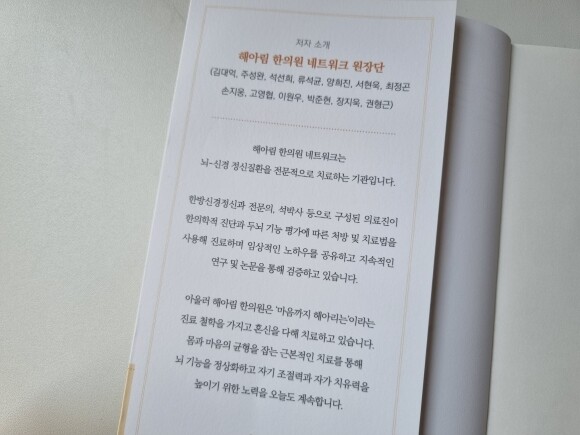 저자 소개
해아림 한의원 네트워크 원장단
(김대억, 주성완, 석선희, 류석균, 양희진, 서현욱, 최정곤
손지웅, 고명협, 이원우, 박준현, 장지욱, 권형근)
해아림 한의원 네트워크는
뇌-신경 정신질환을 전문적으로 치료하는 기관입니다.
한방신경정신과 전문의, 석박사 등으로 구성된 의료진이
한의학적 진단과 두뇌 기능 평가에 따른 처방 및 치료법을
사용해 진료하며 임상적인 노하우를 공유하고 지속적인
연구 및 논문을 통해 검증하고 있습니다.
아울러 해아림 한의원은 '마음까지 헤아리는'이라는
진료 철학을 가지고 혼신을 다해 치료하고 있습니다.
몸과 마음의 균형을 잡는 근본적인 치료를 통해
뇌 기능을 정상화하고 자기 조절력과 자가 치유력을
높이기 위한 노력을 오늘도 계속합니다.